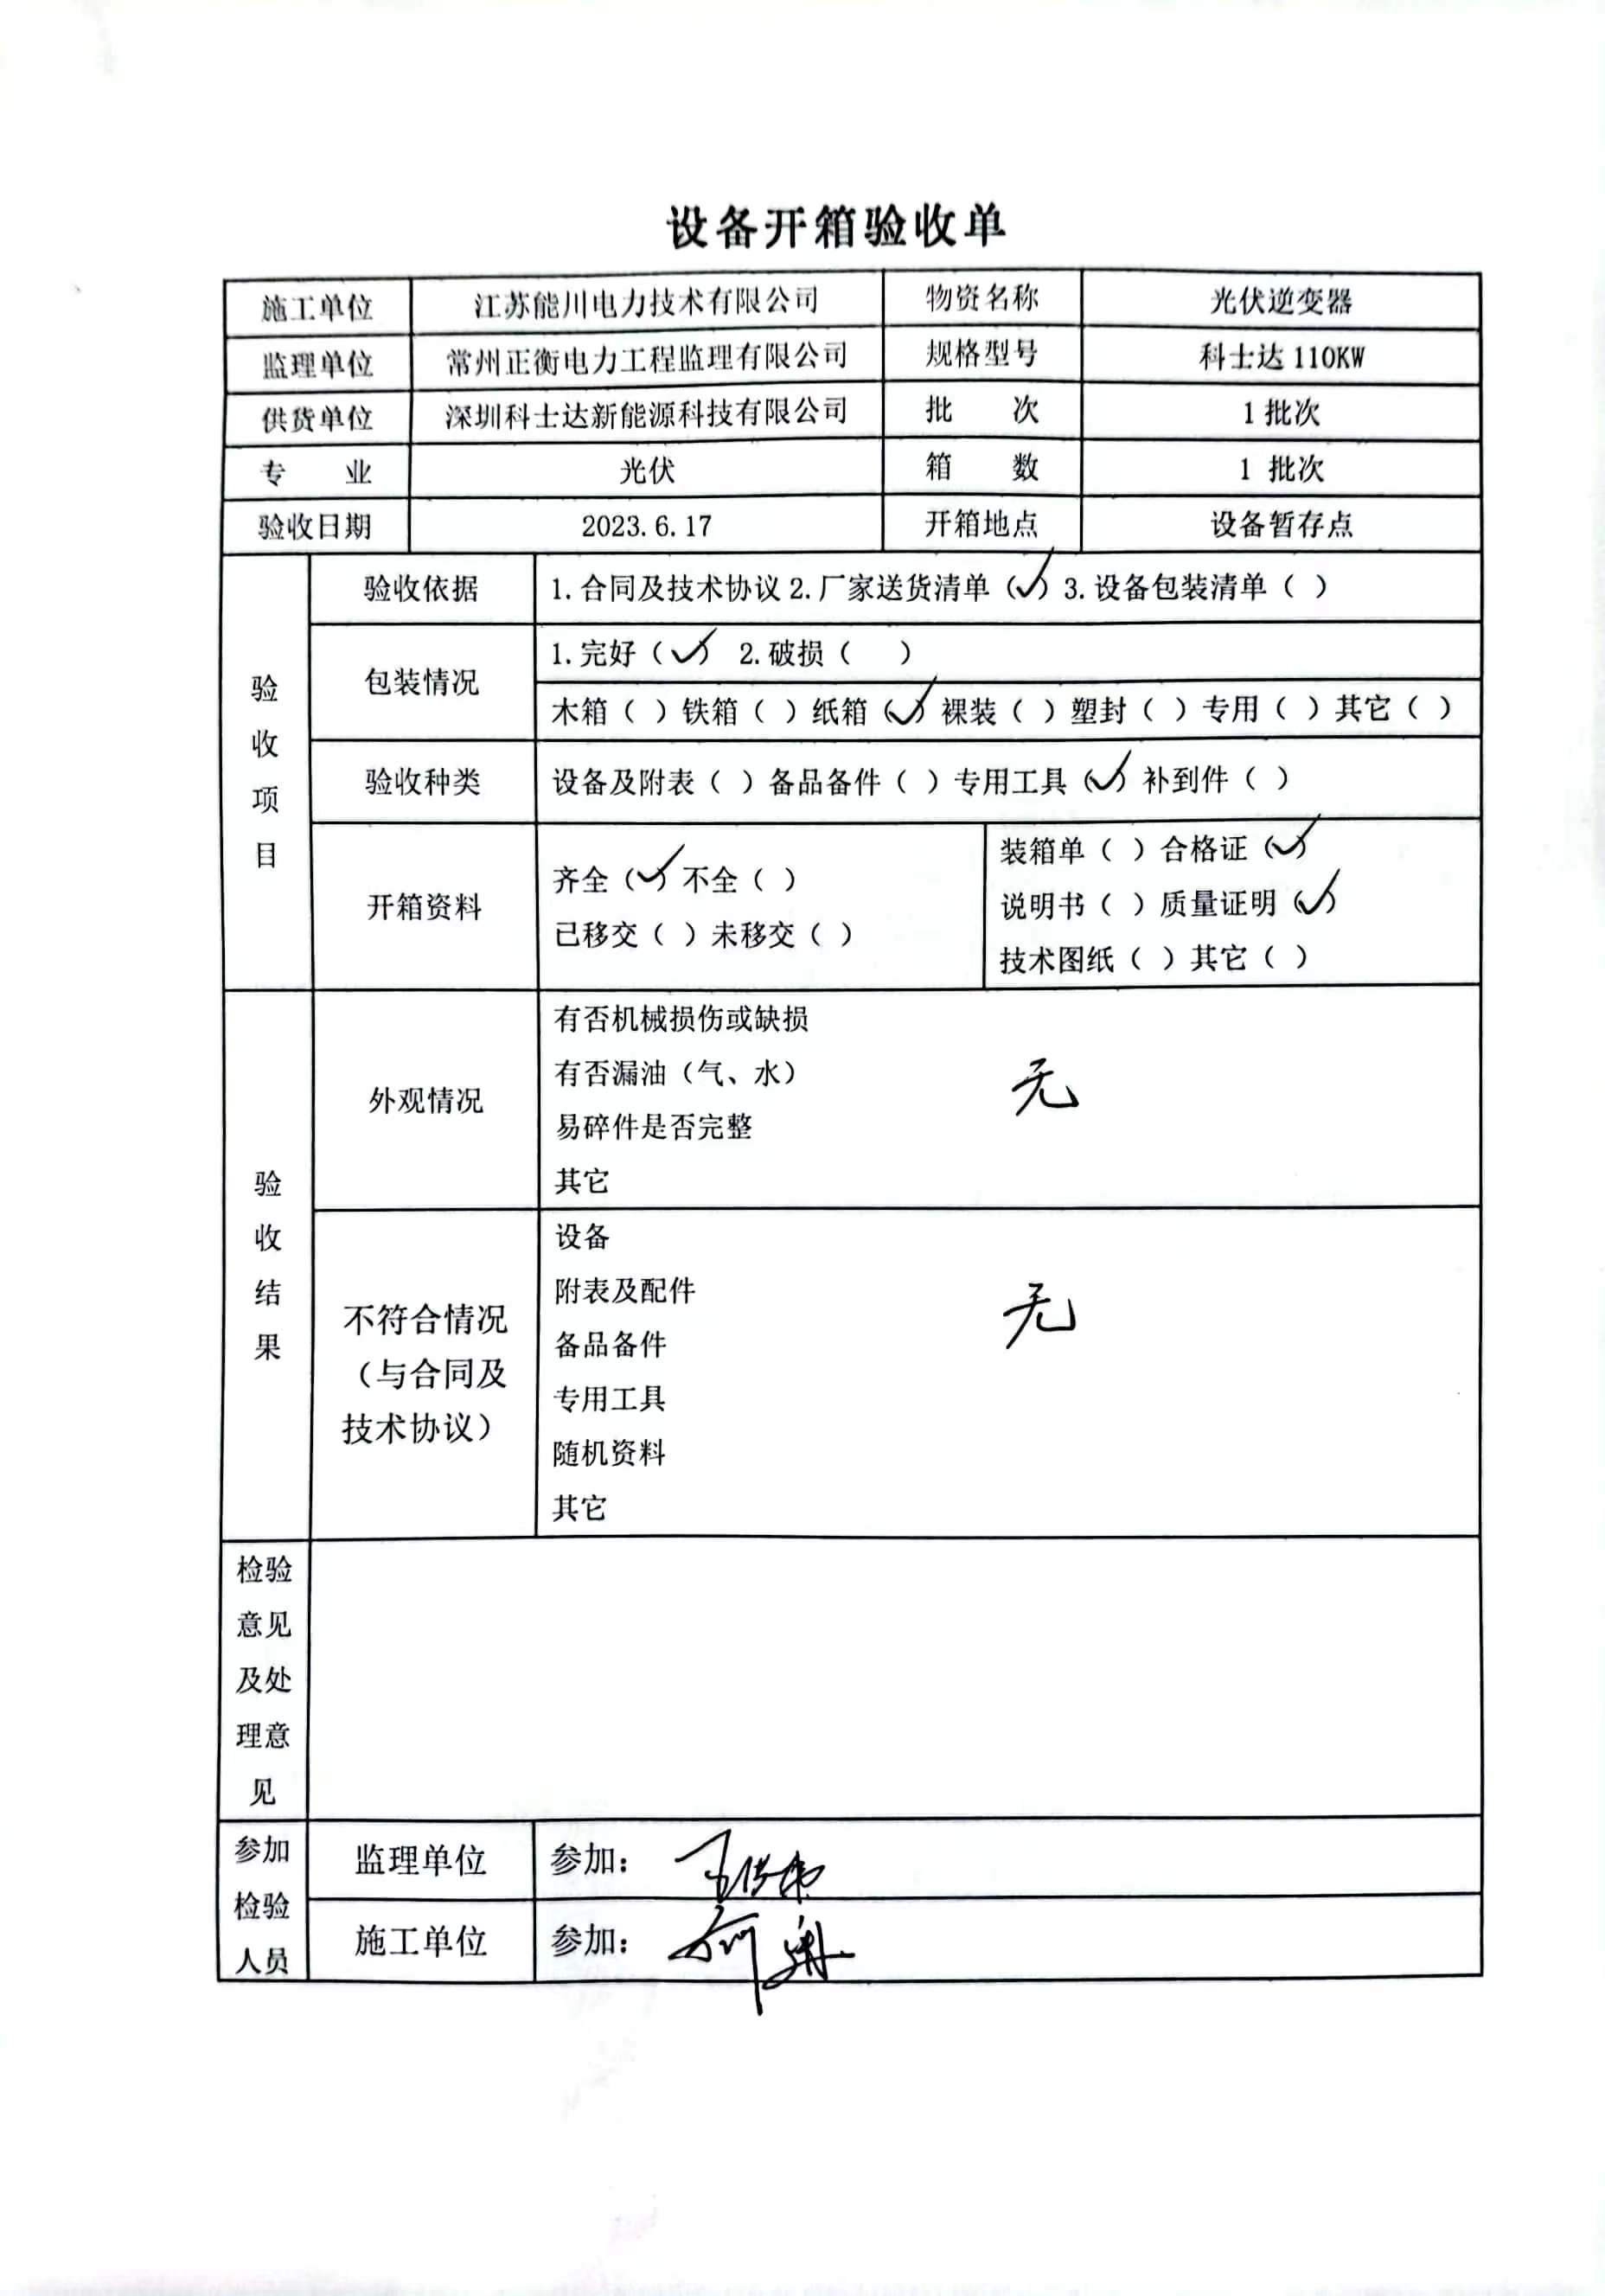 设备开箱验收单
施工单位 江苏能川电力技术有限公司 物资名称 光伏逆变器
监理单位 常州正衡电力工程监理有限公司 规格型号 科士达 110KW
供货单位 深圳科士达新能源科技有限公司 批 次 1 批次
专 业 光伏 箱 数 1 批次
验收日期 2023.6.17 开箱地点 设备暂存点
验收项目
验收依据 1.合同及技术协议 2.厂家送货清单（✓）3.设备包装清单（ ）
包装情况 1.完好（✓） 2.破损（ ）
木箱（ ）铁箱（ ）纸箱（✓）裸装（ ）塑封（ ）专用（ ）其它（ ）
验收种类 设备及附表（ ）备品备件（ ）专用工具（✓）补到件（ ）
开箱资料 齐全（✓）不全（ ）
已移交（ ）未移交（ ）
装箱单（ ）合格证（✓）
说明书（ ）质量证明（✓）
技术图纸（ ）其它（ ）
验收结果
外观情况 有否机械损伤或缺损
有否漏油（气、水）
无
易碎件是否完整
其它
不符合情况
（与合同及
技术协议）
设备
附表及配件
无
备品备件
专用工具
随机资料
其它
检验
意见
及处
理意
见
参加
检验
人员
监理单位 参加：
施工单位 参加：